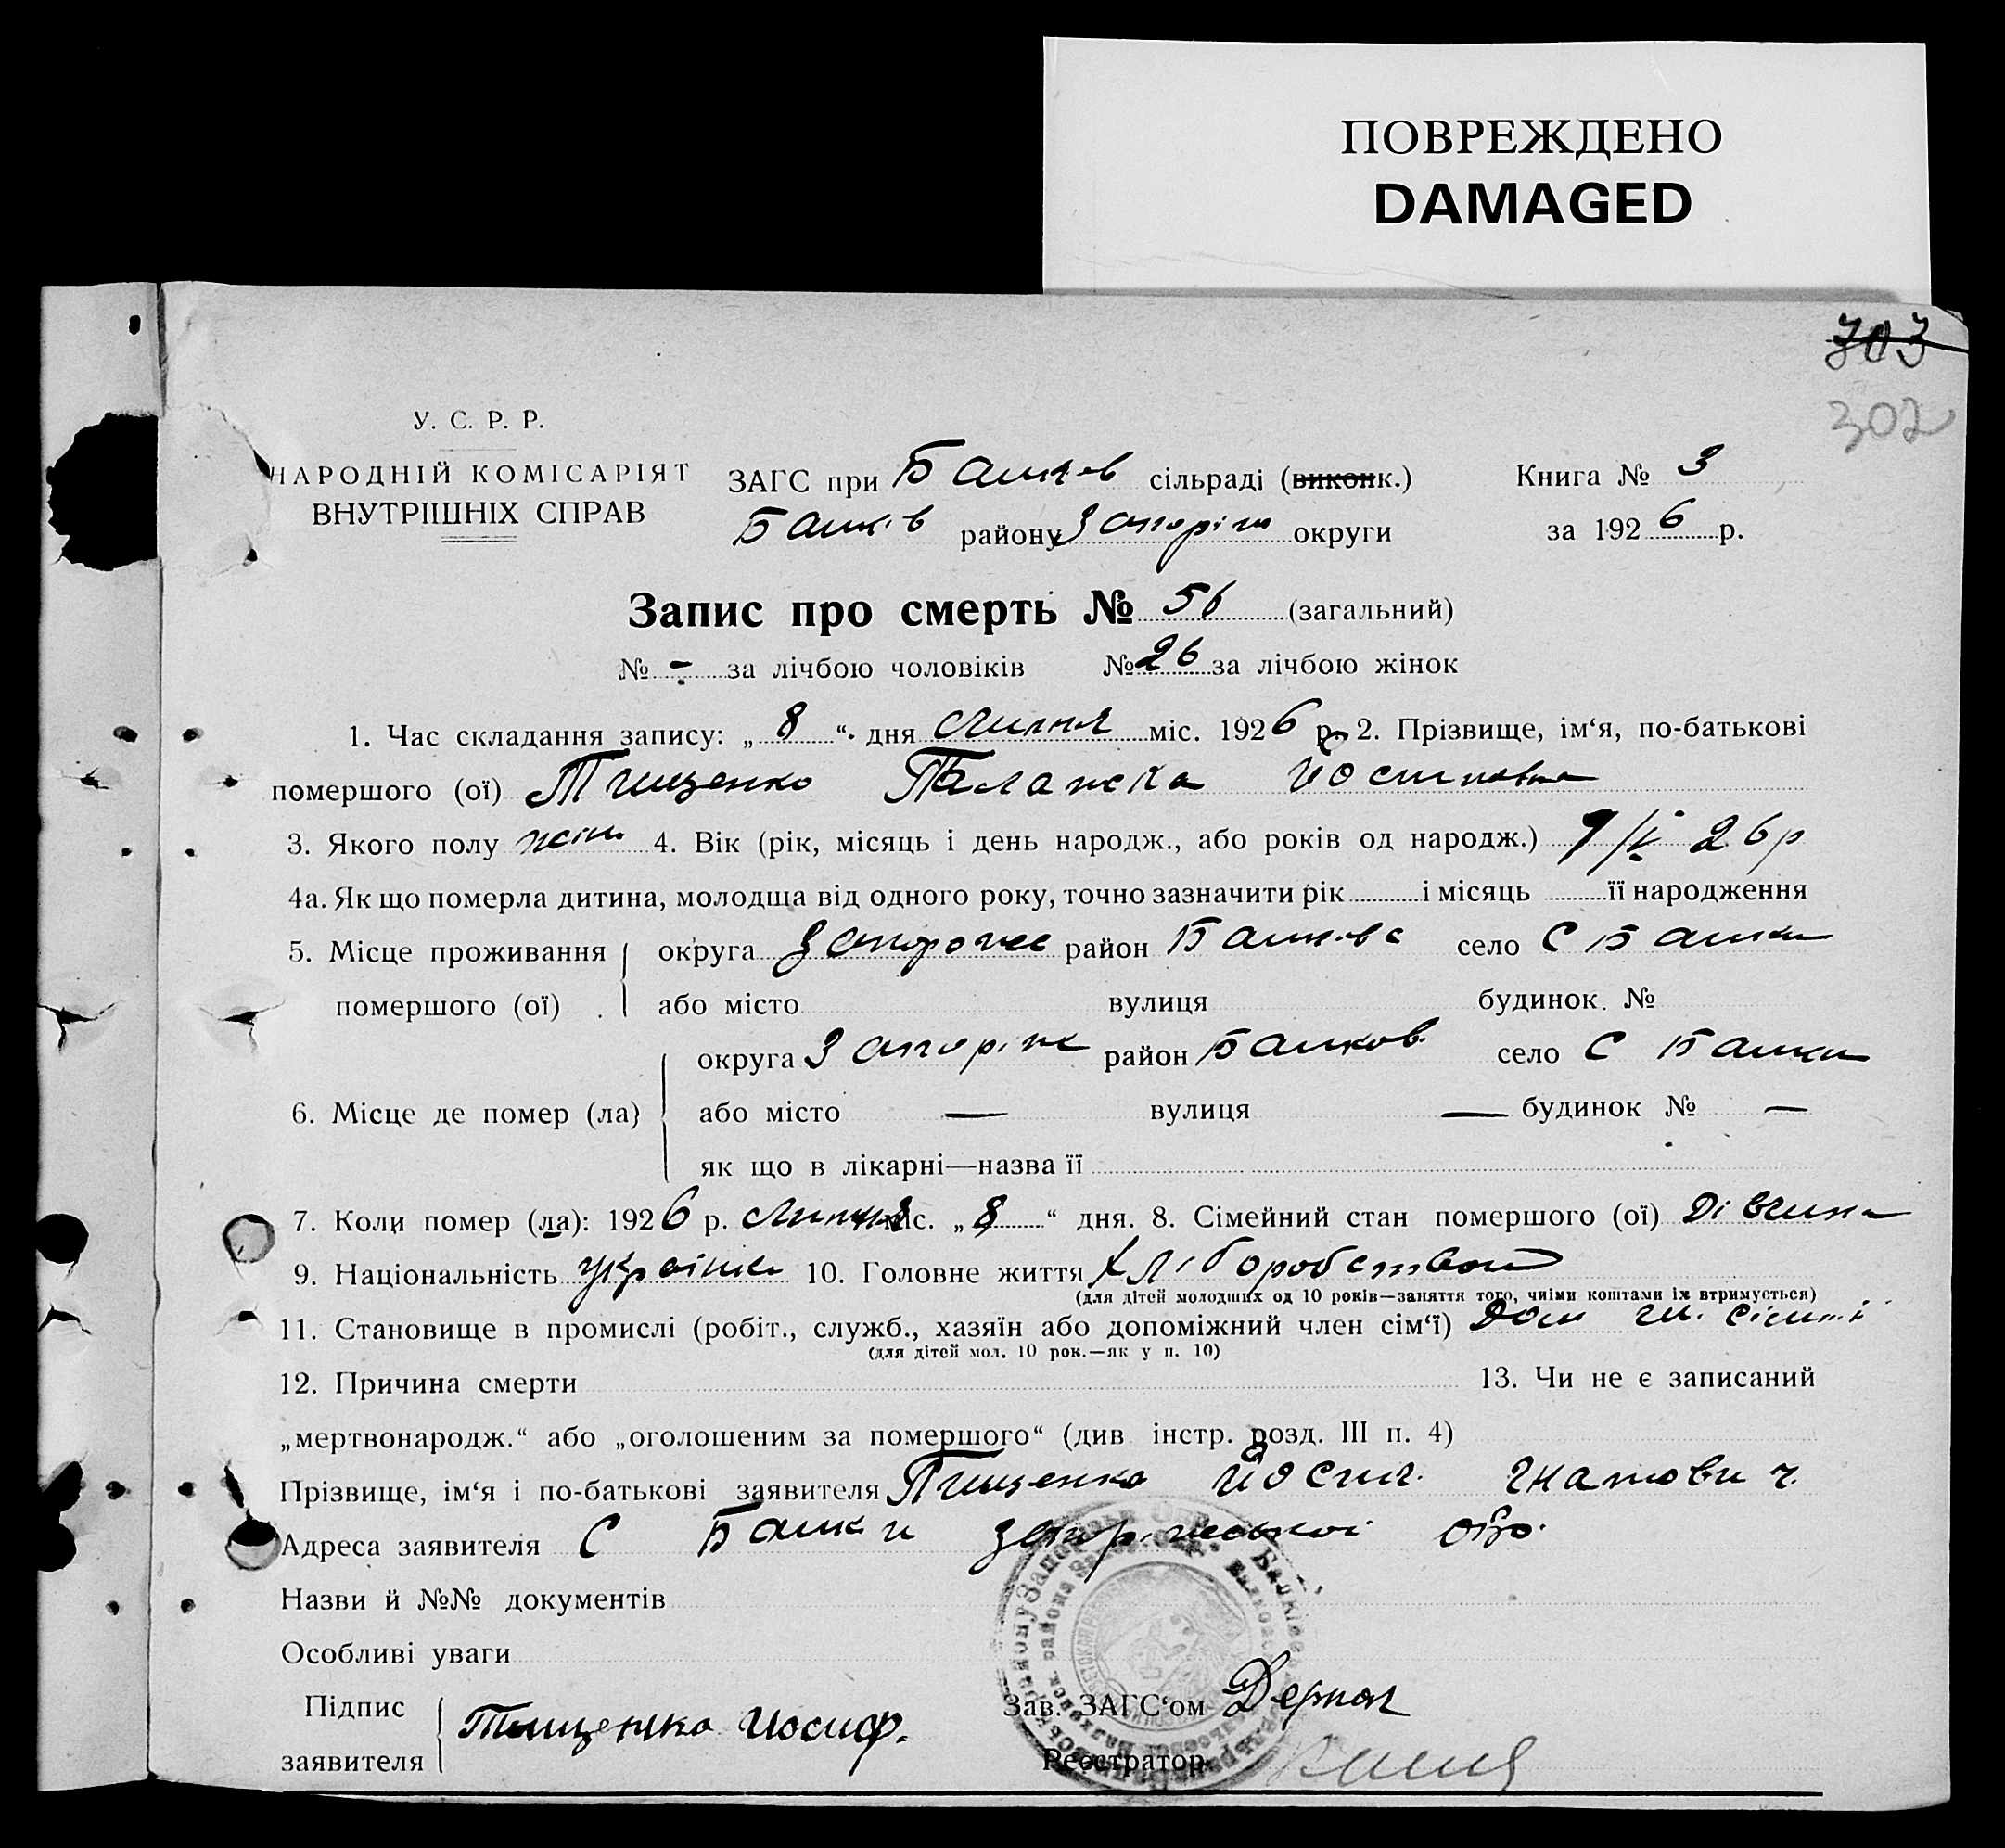 ПОВРЕЖДЕНО
DAMAGED
303
302
У. С. Р. Р.
НАРОДНІЙ КОМІСАРІЯТ
ВНУТРІШНІХ СПРАВ
ЗАГС при Башков сільраді (виконк.) Книга № 3
Башків району Запоріж округи за 1926 р.
Запис про смерть № 56 (загальний)
№ - за лічбою чоловіків № 26 за лічбою жінок
1. Час складання запису: „ 8 “ дня липня міс. 1926 р. 2. Прізвище, ім‘я, по-батькові
помершого (ої) Тищенко Палажка Йосиповна
3. Якого полу жін. 4. Вік (рік, місяць і день народж., або років од народж.) 26 р
4а. Як що померла дитина, молодща від одного року, точно зазначити рік і місяць її народження
5. Місце проживання округа район село С
помершого (ої) або місто вулиця будинок №
округа Запоріж район Башков. село С Башки
6. Місце де помер (ла) або місто — вулиця — будинок № —
як що в лікарні—назва її
7. Коли помер (ла): 1926 р. липня міс. „ 8 “ дня. 8. Сімейний стан помершого (ої) Дівчина
9. Національність Українка 10. Головне життя Хліборобством
(для дітей молодших од 10 років—заняття того, чиїми коштами їх втримується)
11. Становище в промислі (робіт., служб., хазяїн або допоміжний член сім‘ї) Доп чл. сімї
(для дітей мол. 10 рок.—як у п. 10)
12. Причина смерти 13. Чи не є записаний
„мертвонародж.“ або „оголошеним за помершого“ (див інстр. розд. III п. 4)
Прізвище, ім‘я і по-батькові заявителя Тищенко Йосип. Гнатович.
Адреса заявителя С Башки Запоріжської
Назви й №№ документів
Особливі уваги
Підпис
заявителя
Тищенко Иосиф.
Зав. ЗАГС‘ом
Реєстратор